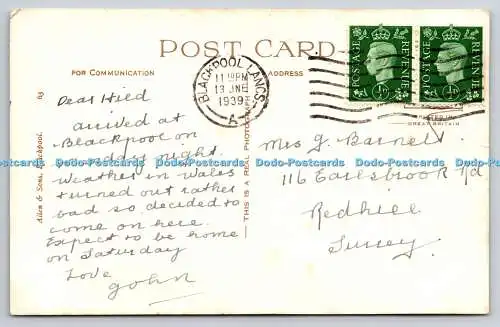 POST CARD
FOR COMMUNICATION
ADDRESS
BLACKPOOL, LANCS.
11 PM
13 JNE
1939
A
POSTAGE REVENUE
½D
POSTAGE REVENUE
½D
PRINTED IN
GREAT BRITAIN
63
Allen & Sons, Blackpool.
THIS IS A REAL PHOTOGRAPH
Dear Hild
arrived at
Blackpool on
night.
Weather in Wales
turned out rather
bad so decided to
come on here.
Expect to be home
on Saturday
Love
John
Mrs G. Barnett
116 Earlsbrook Rd
Redhill
Surrey.
Dodo-Postcards Dodo-Postcards Dodo-Postcards Dodo-Postcards Dodo-Postcards